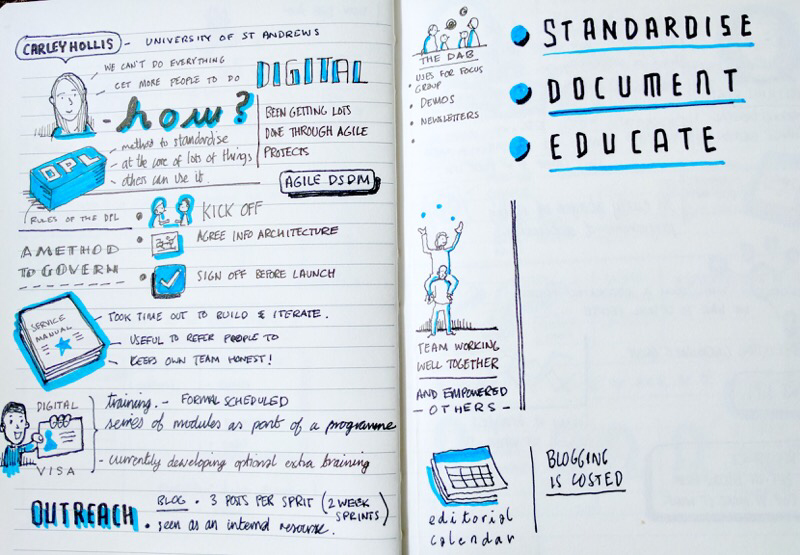 CARLEY HOLLIS - UNIVERSITY OF ST ANDREWS
WE CAN'T DO EVERYTHING
GET MORE PEOPLE TO DO DIGITAL
- how?
BEEN GETTING LOTS
DONE THROUGH AGILE
PROJECTS
DPL
method to standardise
at the core of lots of things
others can use it
AGILE DSDM
RULES OF THE DPL
KICK OFF
AGREE INFO ARCHITECTURE
SIGN OFF BEFORE LAUNCH
A METHOD
TO GOVERN
SERVICE
MANUAL
TOOK TIME OUT TO BUILD & ITERATE.
USEFUL TO REFER PEOPLE TO
KEEPS OWN TEAM HONEST!
DIGITAL
VISA
training. - FORMAL SCHEDULED
series of modules as part of a programme
- currently developing optional extra training
OUTREACH
BLOG • 3 POSTS PER SPRIT (2 WEEK
SPRINTS)
• seen as an internal resourse.
THE DAB
USES FOR FOCUS
GROUP
• DEMOS
• NEWSLETTERS
•
• STANDARDISE
• DOCUMENT
• EDUCATE
TEAM WORKING
WELL TOGETHER
AND EMPOWERED
- OTHERS -
editorial
calendar
BLOGGING
IS COSTED